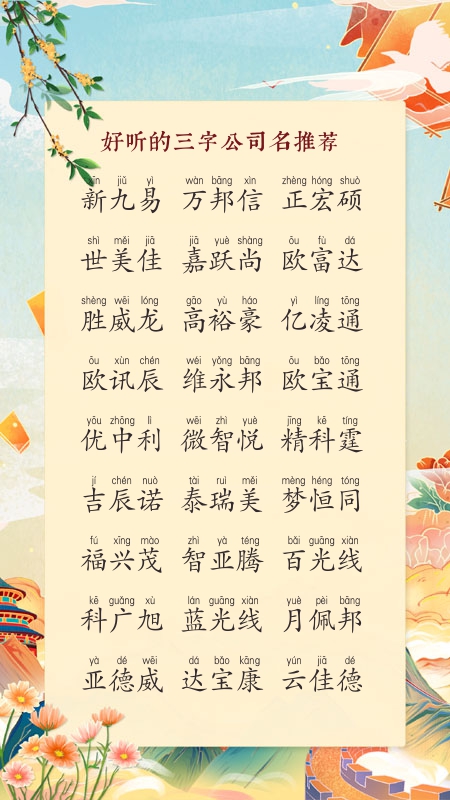 好听的三字公司名推荐
xīn jiǔ yì wàn bāng xìn zhèng hóng shuò
新九易 万邦信 正宏硕
shì měi jiā jiā yuè shàng ōu fù dá
世美佳 嘉跃尚 欧富达
shèng wēi lóng gāo yù háo yì líng tōng
胜威龙 高裕豪 亿凌通
ōu xùn chén wéi yǒng bāng ōu bǎo tōng
欧讯辰 维永邦 欧宝通
yōu zhōng lì wēi zhì yuè jīng kē tíng
优中利 微智悦 精科霆
jí chén nuò tài ruì měi mèng héng tóng
吉辰诺 泰瑞美 梦恒同
fú xīng mào zhì yà téng bǎi guāng xiàn
福兴茂 智亚腾 百光线
kē guǎng xù lán guāng xiàn yuè pèi bāng
科广旭 蓝光线 月佩邦
yà dé wēi dá bǎo kāng yún jiā dé
亚德威 达宝康 云佳德